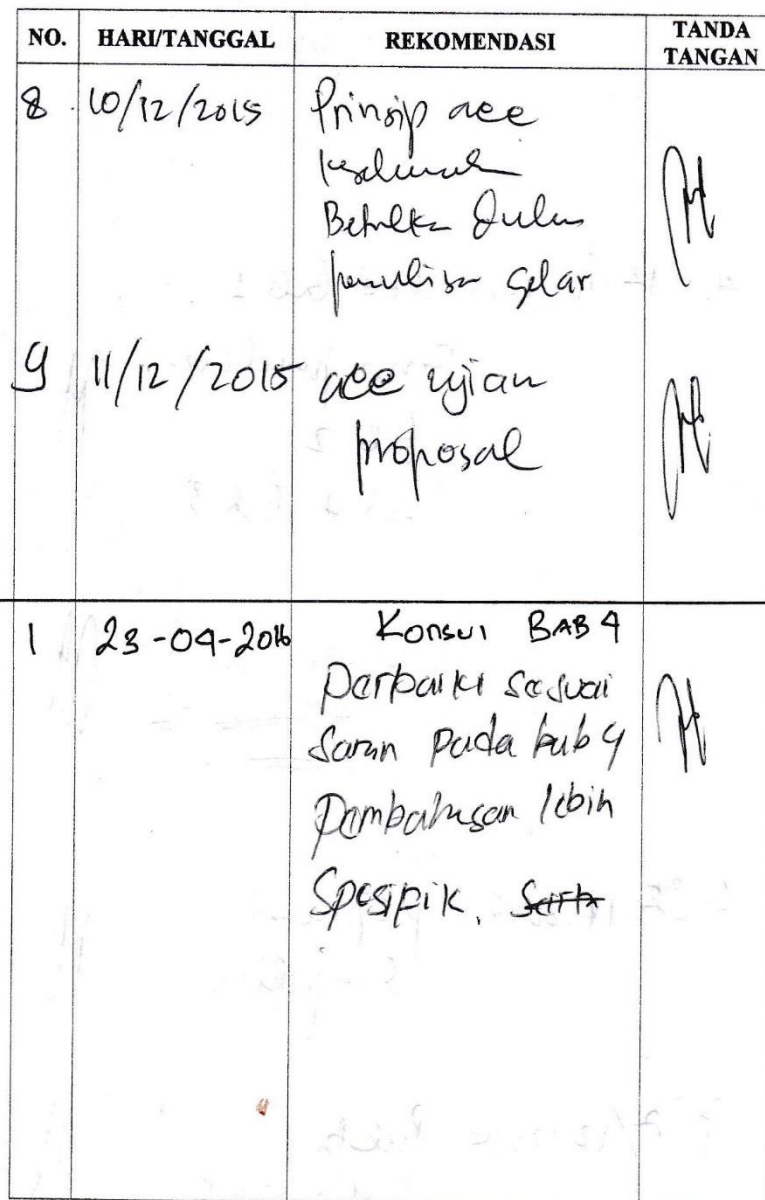 NO. HARI/TANGGAL REKOMENDASI TANDA TANGAN
8 10/12/2015 Prinsip acc
Betulka dulu
penulisan gelar
9 11/12/2015 acc ujian
proposal
1 23-04-2016 Konsul BAB 4
Perbaiki sesuai
Saran pada bab 4
Pembahasan lebih
Spesipik.